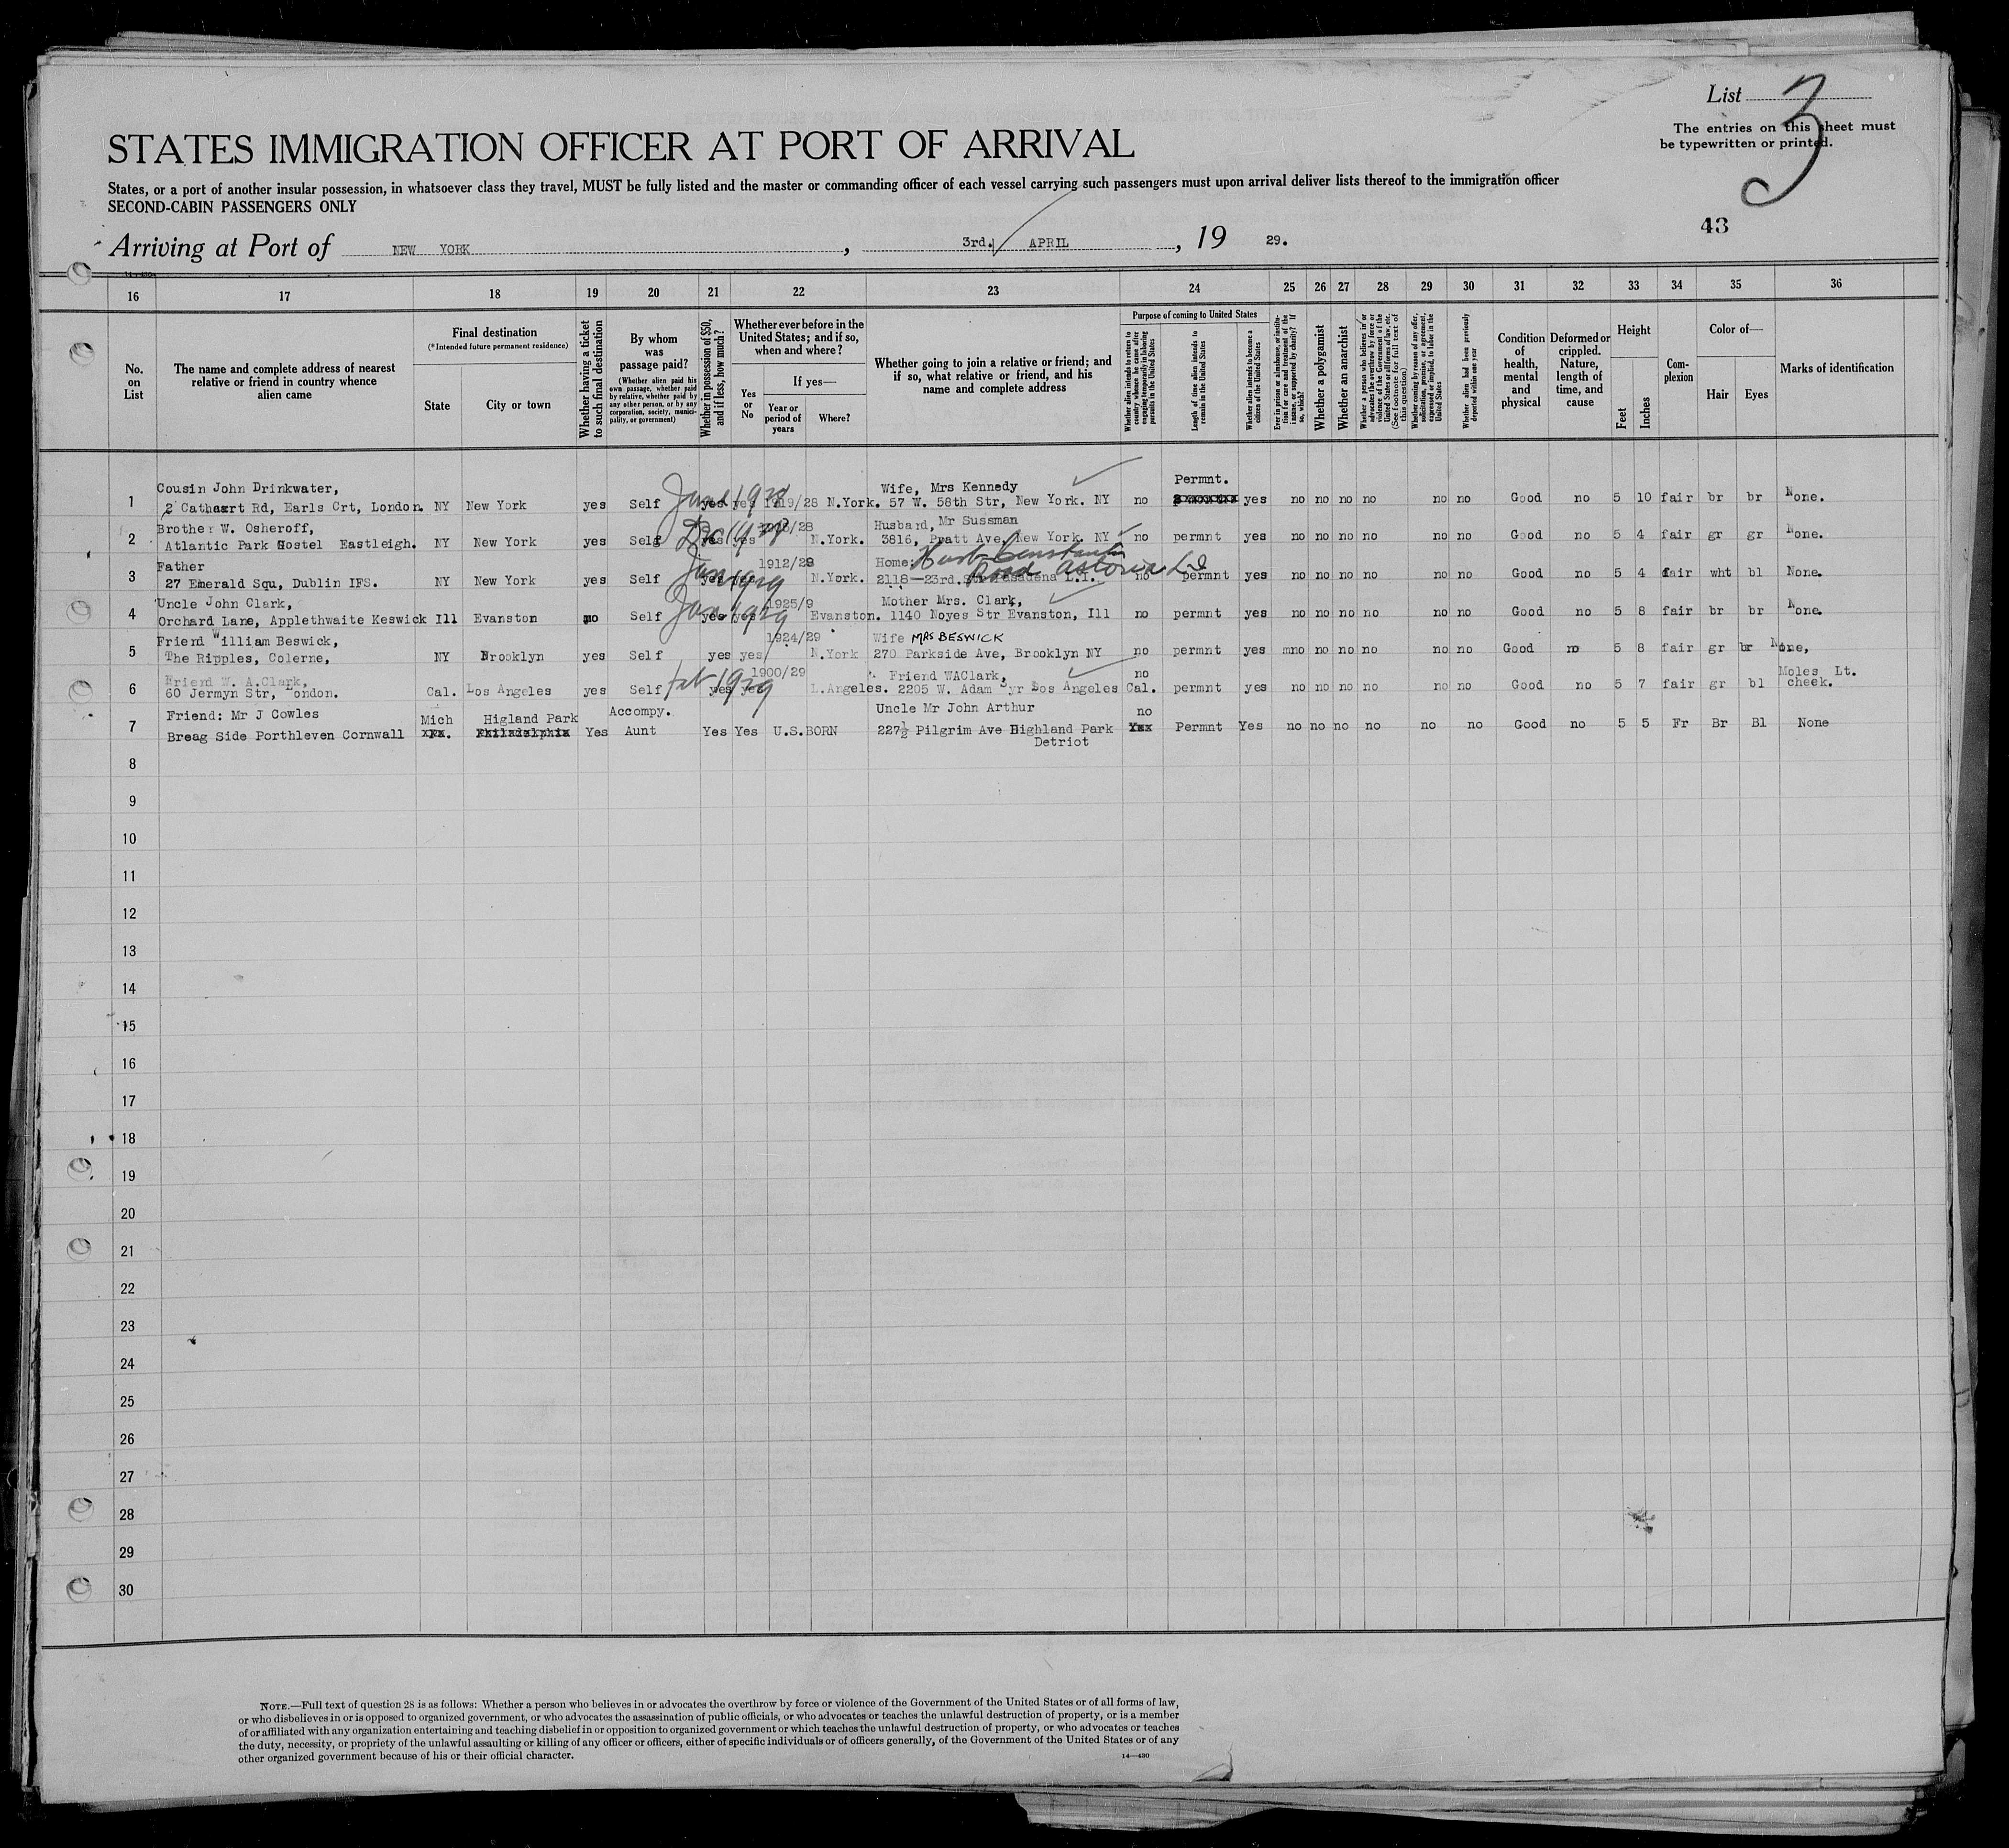 List 3
The entries on this sheet must
be typewritten or printed.
STATES IMMIGRATION OFFICER AT PORT OF ARRIVAL
States, or a port of another insular possession, in whatsoever class they travel, MUST be fully listed and the master or commanding officer of each vessel carrying such passengers must upon arrival deliver lists thereof to the immigration officer
SECOND-CABIN PASSENGERS ONLY
43
Arriving at Port of NEW YORK, 3rd. APRIL, 19 29.
16 17 18 19 20 21 22 23 24 25 26 27 28 29 30 31 32 33 34 35 36
No. on List
The name and complete address of nearest relative or friend in country whence alien came
Final destination
(*Intended future permanent residence)
State
City or town
Whether having a ticket to such final destination
By whom was passage paid?
(Whether alien paid his own passage, whether paid by relative, whether paid by any other person, or by any corporation, society, municipality, or government)
Whether in possession of $50, and if less, how much?
Whether ever before in the United States; and if so, when and where?
Yes or No
If yes—
Year or period of years
Where?
Whether going to join a relative or friend; and if so, what relative or friend, and his name and complete address
Purpose of coming to United States
Whether alien intends to return to country whence he came after engaging temporarily in laboring pursuits in the United States
Length of time alien intends to remain in the United States
Whether alien intends to become a citizen of the United States
Ever in prison or almshouse, or institution for care and treatment of the insane, or supported by charity? If so, which?
Whether a polygamist
Whether an anarchist
Whether a person who believes in or advocates the overthrow by force or violence of the Government of the United States or all forms of law, etc. (See footnote for full text of this question)
Whether coming by reason of any offer, solicitation, promise, or agreement, expressed or implied, to labor in the United States
Whether alien had been previously deported within one year
Condition of health, mental and physical
Deformed or crippled. Nature, length of time, and cause
Height
Feet
Inches
Complexion
Color of—
Hair
Eyes
Marks of identification
Cousin John Drinkwater, June 1928 Wife, Mrs Kennedy Permnt.
1 2 Cathaert Rd, Earls Crt, London. NY New York yes Self yes yes 1919/28 N.York. 57 W. 58th Str, New York. NY no yes no no no no no no Good no 5 10 fair br br None.
Brother W. Osheroff, Dec 1928 /28 Husbard, Mr Sussman
2 Atlantic Park Hostel Eastleigh. NY New York yes Selg yes yes N.York. 3816, Pratt Ave, New York. NY no permnt yes no no no no no no Good no 5 4 fair gr gr None.
Father Jan 1929 1912/28 Home: Husb Constantin
3 27 Emerald Squ, Dublin IFS. NY New York yes Self yes yes N.York. 2118—23rd. Pasadena L.I. Road Astoria LI no permnt yes no no no no no no Good no 5 4 fair wht bl None.
Uncle John Clark, Jan 1929 1925/9 Mother Mrs. Clark,
4 Orchard Lane, Applethwaite Keswick Ill Evanston no Self yes yes Evanston. 1140 Noyes Str Evanston, Ill no permnt yes no no no no no no Good no 5 8 fair br br None.
Friend William Beswick, 1924/29 Wife MRS BESWICK
5 The Ripples, Colerne, NY Brooklyn yes Self yes yes N.York 270 Parkside Ave, Brooklyn NY no permnt yes mno no no no no no Good no 5 8 fair gr br None,
Friend W. A.Clark, Feb 1929 1900/29 Friend WAClark, no Moles Lt.
6 60 Jermyn Str, London. Cal. Los Angeles yes Self yes yes L.Angeles. 2205 W. Adam Syr Los Angeles Cal. permnt yes no no no no no no Good no 5 7 fair gr bl cheek.
Friend: Mr J Cowles Mich Higland Park Accompy. Uncle Mr John Arthur no
7 Breag Side Porthleven Cornwall Pa. Philadelphia Yes Aunt Yes Yes U.S.BORN 227½ Pilgrim Ave Highland Park Yes Permnt Yes no no no no no no Good no 5 5 Fr Br Bl None
Detriot
8
9
10
11
12
13
14
15
16
17
18
19
20
21
22
23
24
25
26
27
28
29
30
NOTE.—Full text of question 28 is as follows: Whether a person who believes in or advocates the overthrow by force or violence of the Government of the United States or of all forms of law,
or who disbelieves in or is opposed to organized government, or who advocates the assassination of public officials, or who advocates or teaches the unlawful destruction of property, or is a member
of or affiliated with any organization entertaining and teaching disbelief in or opposition to organized government or which teaches the unlawful destruction of property, or who advocates or teaches
the duty, necessity, or propriety of the unlawful assaulting or killing of any officer or officers, either of specific individuals or of officers generally, of the Government of the United States or of any
other organized government because of his or their official character.
14—430